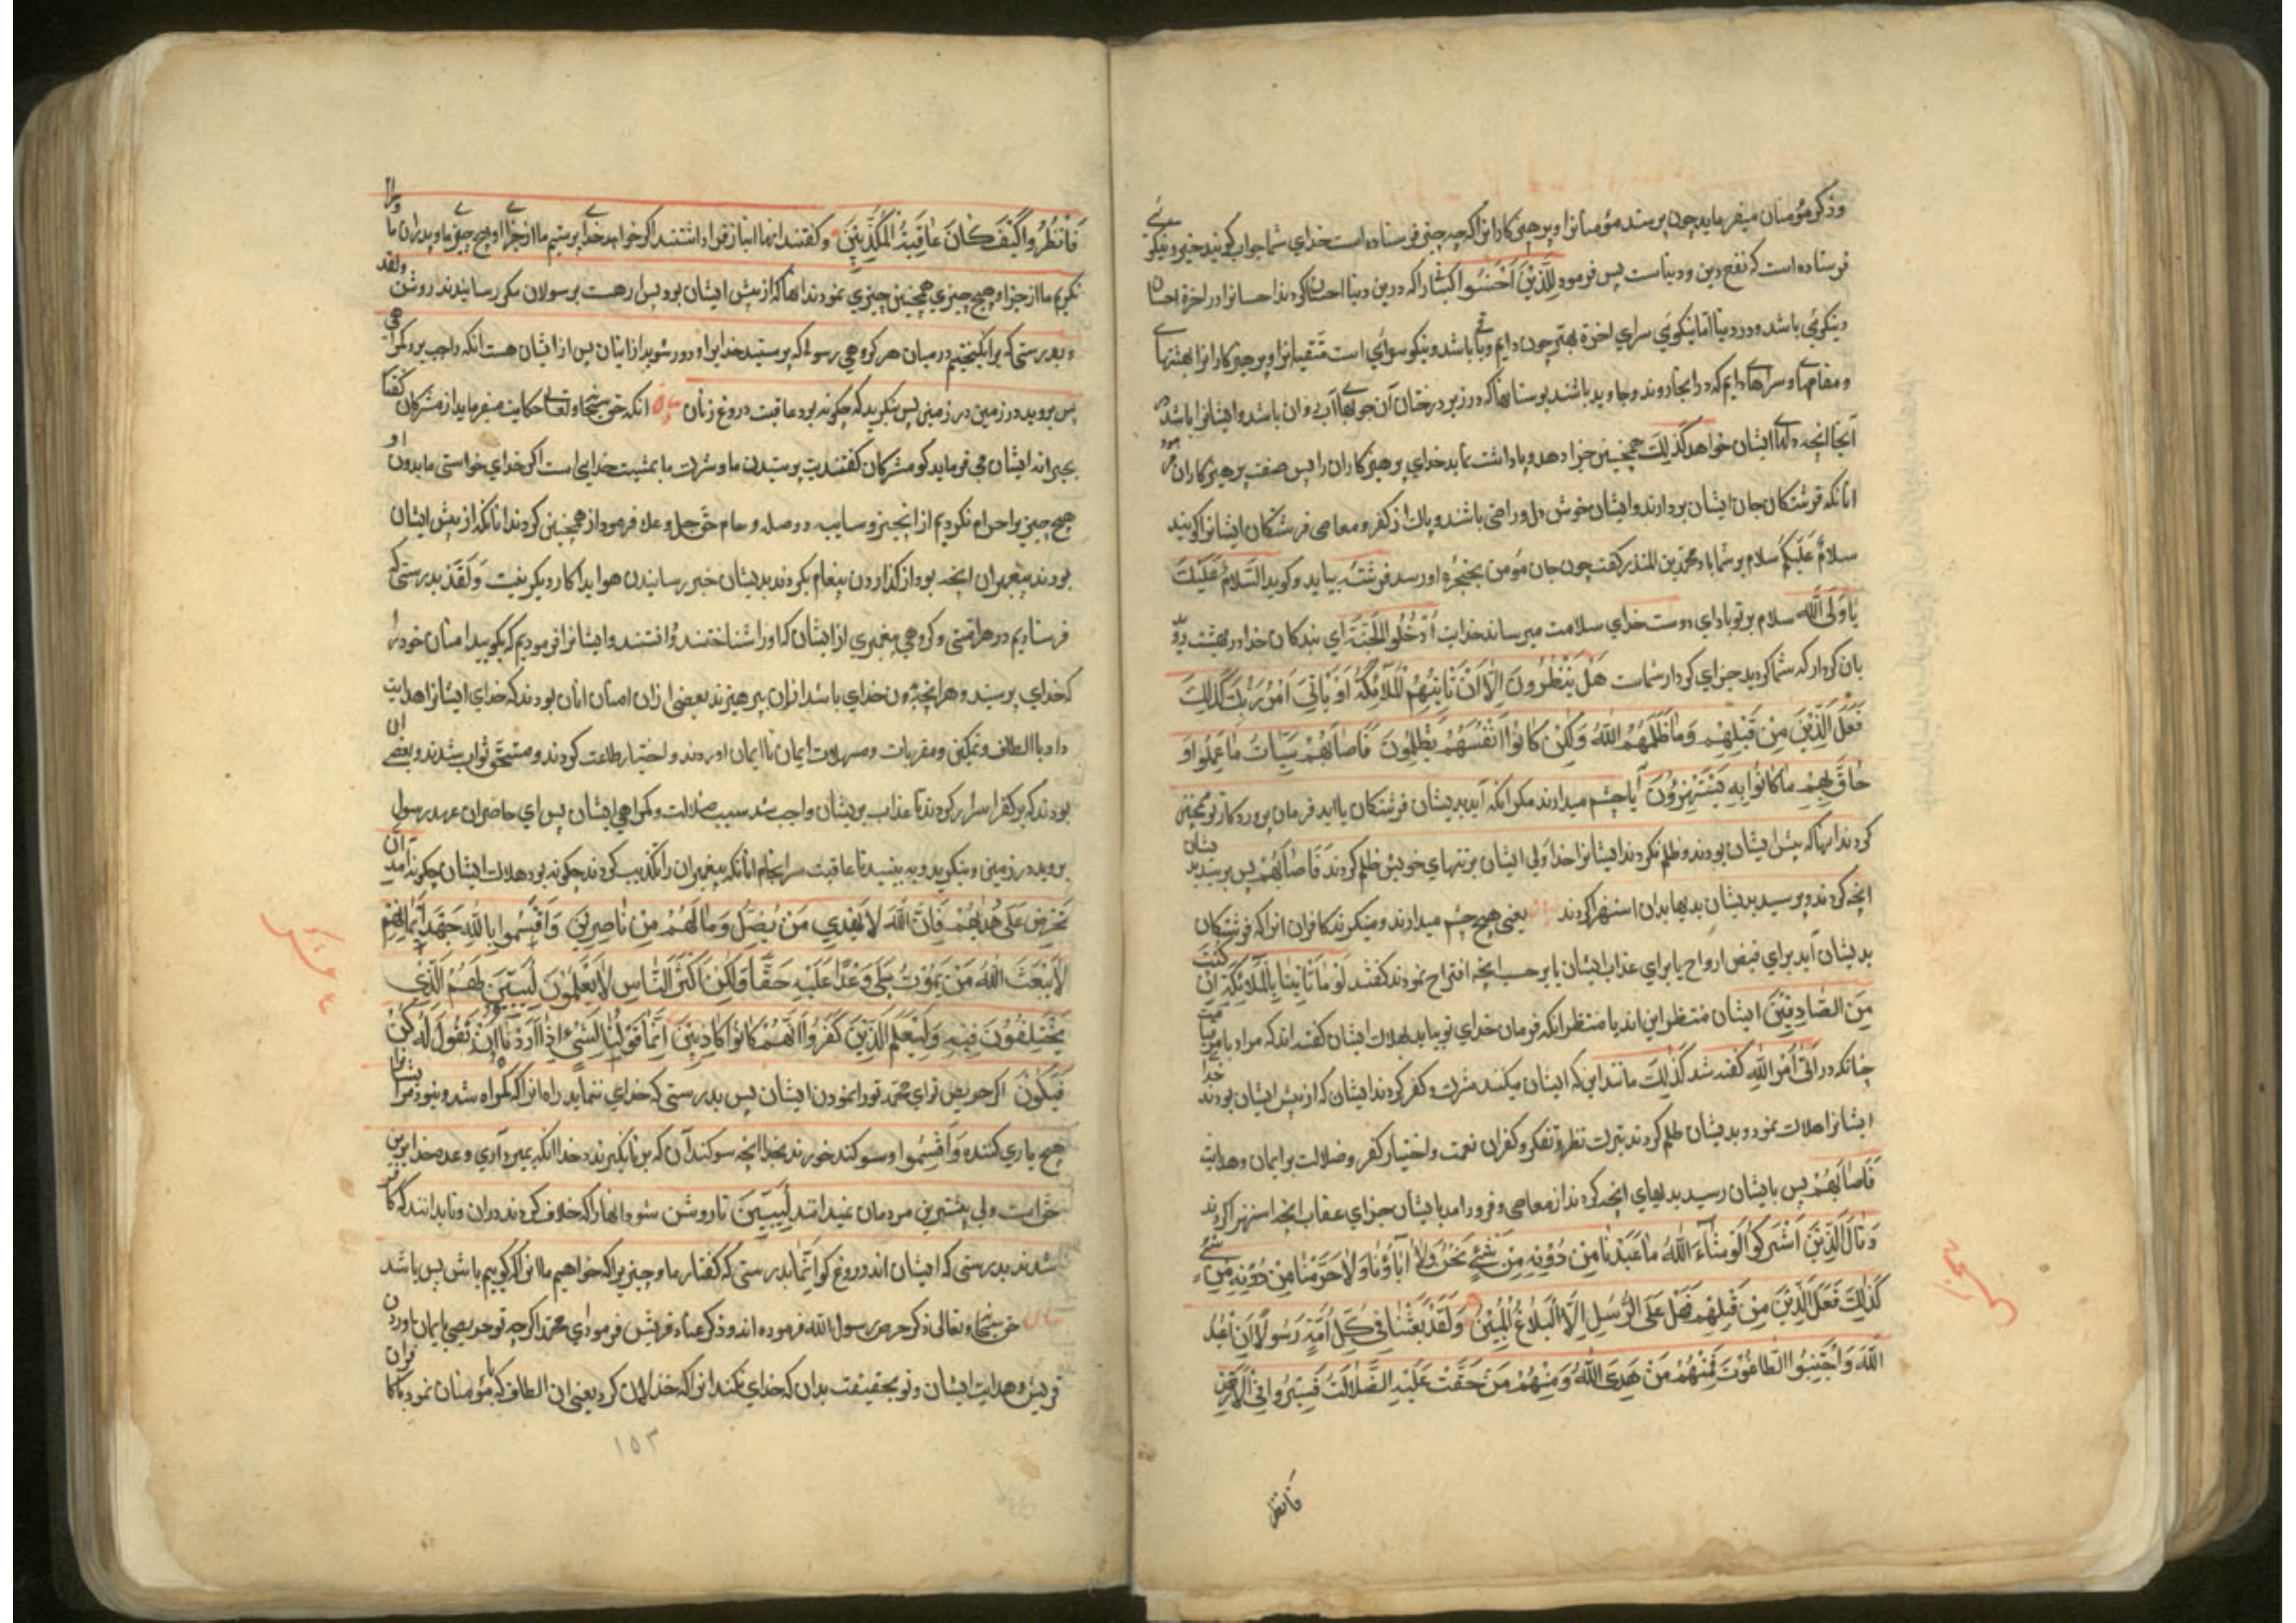 وذکر مؤمنان میفرماید چون پرسند مؤمنانرا و پرهیزکارانرا که چه چیز فرستاده است خدای شما جواب کویند خیر و نیکوئی
فرستاده است که نفع دین و دنیاست پس فرمود لِلَّذِیْنَ اَحْسَنُوا کسانراکه درین دنیا احسان کردند احسانرا در اخرة احسان
ونیکوئی باشد و در دنیا اما نیکوئی سرای اخرة بهتر چون دایم و باقی باشد و نیکو سرائی است متقیانرا و پرهیزکارانرا بهشتهای
ومقامهای و سراهای دایم که در انجا روند و جاوید باشند بوستانها که در زیر درختان آن جویهای آب روان باشد و ایشانرا باشد در
آنجا انچه دلهای ایشان خواهد کَذٰلِكَ همچنین جزا دهد و پاداشت نماید خدای پرهیزکاران را پس صفت پرهیزکاران فرمود
انانکه فرشتکان جان ایشان بردارند و ایشان خوش دل و راضی باشند و پاک از کفر و معاصی فرشتکان ایشانرا کویند
سلامٌ عَلَیکُم سلام بر شما باد محمد بن المنذر کفت چون جان مؤمن بحنجره او رسد فرشته بیاید و کوید السّلامُ عَلَیْكَ
یَا وَلِیَّ اللّٰه سلام بر تو باد ای دوست خدای سلامت میرساند خدایت اُدْخُلُوا الجَنَّةَ ای بندکان خدا در بهشت روید
بان کردار که شما کردید جزای کردار شماست هَلْ یَنْظُرُونَ اِلّا اَنْ تَاْتِیَهُمُ الْمَلٰآئِکَةُ اَوْ یَاْتِیَ اَمْرُ رَبِّكَ کَذٰلِكَ
فَعَلَ الَّذِیْنَ مِنْ قَبْلِهِمْ وَمَا ظَلَمَهُمُ اللّٰهُ وَلٰکِنْ کٰانُوا اَنْفُسَهُمْ یَظْلِمُونَ فَاَصٰابَهُمْ سَیِّاٰتُ مٰا عَمِلُوا وَ
حٰاقَ بِهِمْ مٰا کٰانُوا بِهِ یَسْتَهْزِؤُنَ آیا چشم میدارند مکر انکه آید بدیشان فرشتکان یا اید فرمان پروردکار تو همچنین
کردند انها که پیش ایشان بودند و ظلم نکرد ایشانرا خدا ولی ایشان بر تنهای خویش ظلم کردند فَاَصٰابَهُمْ پس برسید بدیشان
انچه کردند و برسید بدیشان بدیها بدان استهزا کردند یعنی هیچ چشم میدارند و مینکرند کافران انراکه فرشتکان
بدیشان آید برای قبض ارواح یا برای عذاب ایشان یا بر حسب انچه اقتراح نمودند کفتند لَوْ مٰا تَاْتِینٰا بِالْمَلٰآئِکَةِ اِنْ کُنْتَ
مِنَ الصّٰادِقِیْنَ ایشان منتظر این اند یا منتظر انکه فرمان خدای تو بیاید بهلاک ایشان کفته اند که مراد بامر قیامت
چنانکه در اَتٰی اَمْرُ اللّٰهِ کفته شد کَذٰلِكَ مانند این که ایشان میکنند شرک و کفر کردند ایشان که از پیش ایشان بودند خدا
ایشانرا هلاک نمود و بدیشان ظلم کردند بترک نظر و تفکر و کفران نعمت و اختیار کفر و ضلالت بر ایمان و هدایت
فَاَصٰابَهُمْ پس بایشان رسید بدیهای انچه کردند از معاصی و فرود امد بایشان جزای عقاب انچه استهزا کردند
وَقٰالَ الَّذِیْنَ اَشْرَکُوا لَوْ شٰآءَ اللّٰهُ مٰا عَبَدْنٰا مِنْ دُوْنِهِ مِنْ شَیْءٍ نَحْنُ وَلٰا اٰبٰاؤُنٰا وَلٰا حَرَّمْنٰا مِنْ دُوْنِهِ مِنْ شَیْءٍ
کَذٰلِكَ فَعَلَ الَّذِیْنَ مِنْ قَبْلِهِمْ فَهَلْ عَلَی الرُّسُلِ اِلَّا الْبَلٰاغُ الْمُبِیْنُ وَلَقَدْ بَعَثْنٰا فِی کُلِّ اُمَّةٍ رَسُولًا اَنِ اعْبُدُ
اللّٰهَ وَاجْتَنِبُوا الطّٰاغُوْتَ فَمِنْهُمْ مَنْ هَدَی اللّٰهُ وَمِنْهُمْ مَنْ حَقَّتْ عَلَیْهِ الضَّلٰالَةُ فَسِیْرُوا فِی الْاَرْضِ
فانظر
فَانْظُرُوا کَیْفَ کٰانَ عٰاقِبَةُ الْمُکَذِّبِیْنَ وکفتند انها انباز قرار داشتند اکر خواهد خدای نپرستیم ما از جزای او هیچ چیزی ما و پدران ما و حرام
نکردیم ما از جزا و هیچ چیزی همچنین چیزی نمودند انها که از پیش ایشان بود پس ار هست بر سولان مکر رسانیدند روشن ولقد
و بدرستی که برانکیختیم در میان هر کروهی رسولی که پرستید خدایرا و دور شوید از ایشان پس از ایشان هست انکه واجب بر و کمراهی
پس بروید در زمین در زمین پس بنکرید که چکونه بود عاقبت دروغ زنان انکه حق سبحانه و تعالی حکایت میفرماید از مشرکان کفتار
بجبرانه ایشان می فرماید کو مشرکان کفتند بت پرستیدن ما و شرک ما بمشیت خدایی است اکر خدای خواستی ما بدون او
هیچ چیز را حرام نکردیم از انچیز و سایبه و وصله و حام حق جل و علا فرمود از همچنین کردند انانکه از پیش ایشان
بودند پیغمبران انچه بود از کذاردن پیغام بکردند بدیشان خبر رسانیدن هویدا کار دیکر نیست وَلَقَدْ بدرستی که
فرستادیم در هر امتی و کروهی پیغمبری از ایشان که اورا شناختند و دانستند و ایشانرا فرمودیم که بکویید امتان خود را
که خدای پرستید و هر انچه بدون خدای باشد از ان بپرهیزند بعضی از ان امتان انان بودند که خدای ایشانرا هدایت
داد با الطاف و تمکین و مقربات و مسهلات ایمان تا ایمان اوردند و اختیار طاعت کردند و مستحق ثواب شدند و بعضی ان
بودند که بر کفر اسرار کردند تا عذاب بریشان واجب شد سبب ضلالت و کمراهی ایشان پس ای حاضران عهد رسول
بروید در زمین و بنکرید و به بینید تا عاقبت سرانجام انانکه پیغمبران را تکذیب کردند چکونه بود هلاک ایشان چکونه امد اِنْ
تَحْرِصْ عَلٰی هُدٰیهُمْ فَاِنَّ اللّٰهَ لَا یَهْدِی مَنْ یُضِلُّ وَمٰا لَهُمْ مِنْ نٰاصِرِیْنَ وَاَقْسَمُوا بِاللّٰهِ جَهْدَ اَیْمٰانِهِمْ
لٰا یَبْعَثُ اللّٰهُ مَنْ یَمُوْتُ بَلٰی وَعْدًا عَلَیْهِ حَقًّا وَلٰکِنَّ اَکْثَرَ النّٰاسِ لٰا یَعْلَمُونَ لِیُبَیِّنَ لَهُمُ الَّذِی
یَخْتَلِفُوْنَ فِیْهِ وَلِیَعْلَمَ الَّذِیْنَ کَفَرُوا اَنَّهُمْ کٰانُوا کٰاذِبِیْنَ اِنَّمٰا قَوْلُنٰا لِشَیْءٍ اِذٰا اَرَدْنٰاهُ اَنْ نَقُولَ لَهُ کُنْ
فَیَکُونُ اکر حریص تو ای محمد تو راه نمودن ایشان پس بدرستی که خدای ننماید راه انرا که کمراه شد و نبود مر ایشانرا
هیچ یاری کننده وَاَقْسَمُوا و سوکند خورند بخدا انچه سوکند آن که بر نانکیزند خدا انکه بمیرد آری وعده خدا برین
حق است ولی بیشترین مردمان نمیدانند لِیُبَیِّنَ تا روشن شود انها را که خلاف کردند دران و تا بدانند که کافر
شدند بدرستی که ایشان اند دروغ کو اِنَّمٰا بدرستی که کفتار ما و چیزیرا که خواهیم ما انرا که کوییم باش پس باشد
حق سبحانه و تعالی ذکر حرص رسول الله فرموده اند و ذکر عناد قریش فرمود ای محمد اکرچه تو حریصی بایمان اوردن
قریش و هدایت ایشان و تو بحقیقت بدان که خدای نکند انرا که خذلان کرد یعنی ان الطاف که با مؤمنان نمود با کافران
۱۵۳